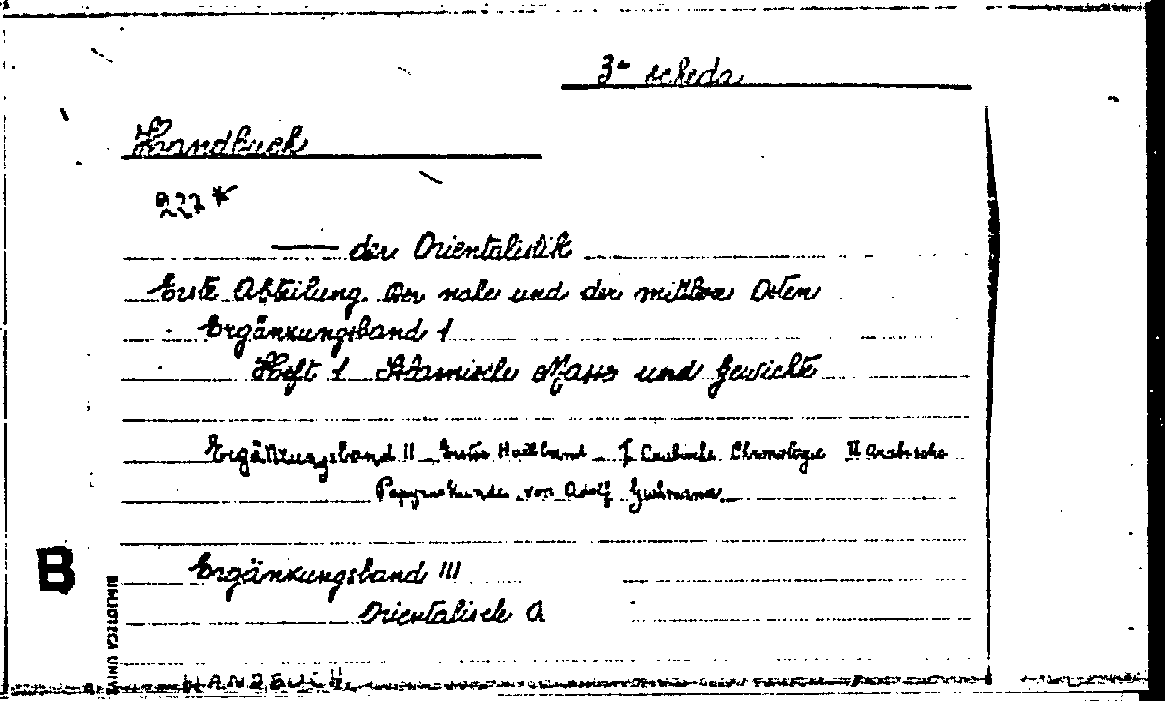 3ª scheda
Handbuch
227*
—— der Orientalistik
Erste Abteilung. Der nahe und der mittlere Osten
Ergänzungsband 1
Heft 1 Islamische Mass und Gewichte
Ergänzungsband II Erster Halbband I Arabische Chronologie II Arabische
Papyruskunde von Adolf Grohmann
Ergänzungsband III
Orientalische A
B
BIBLIOTECA UNIV
HANDBUCH